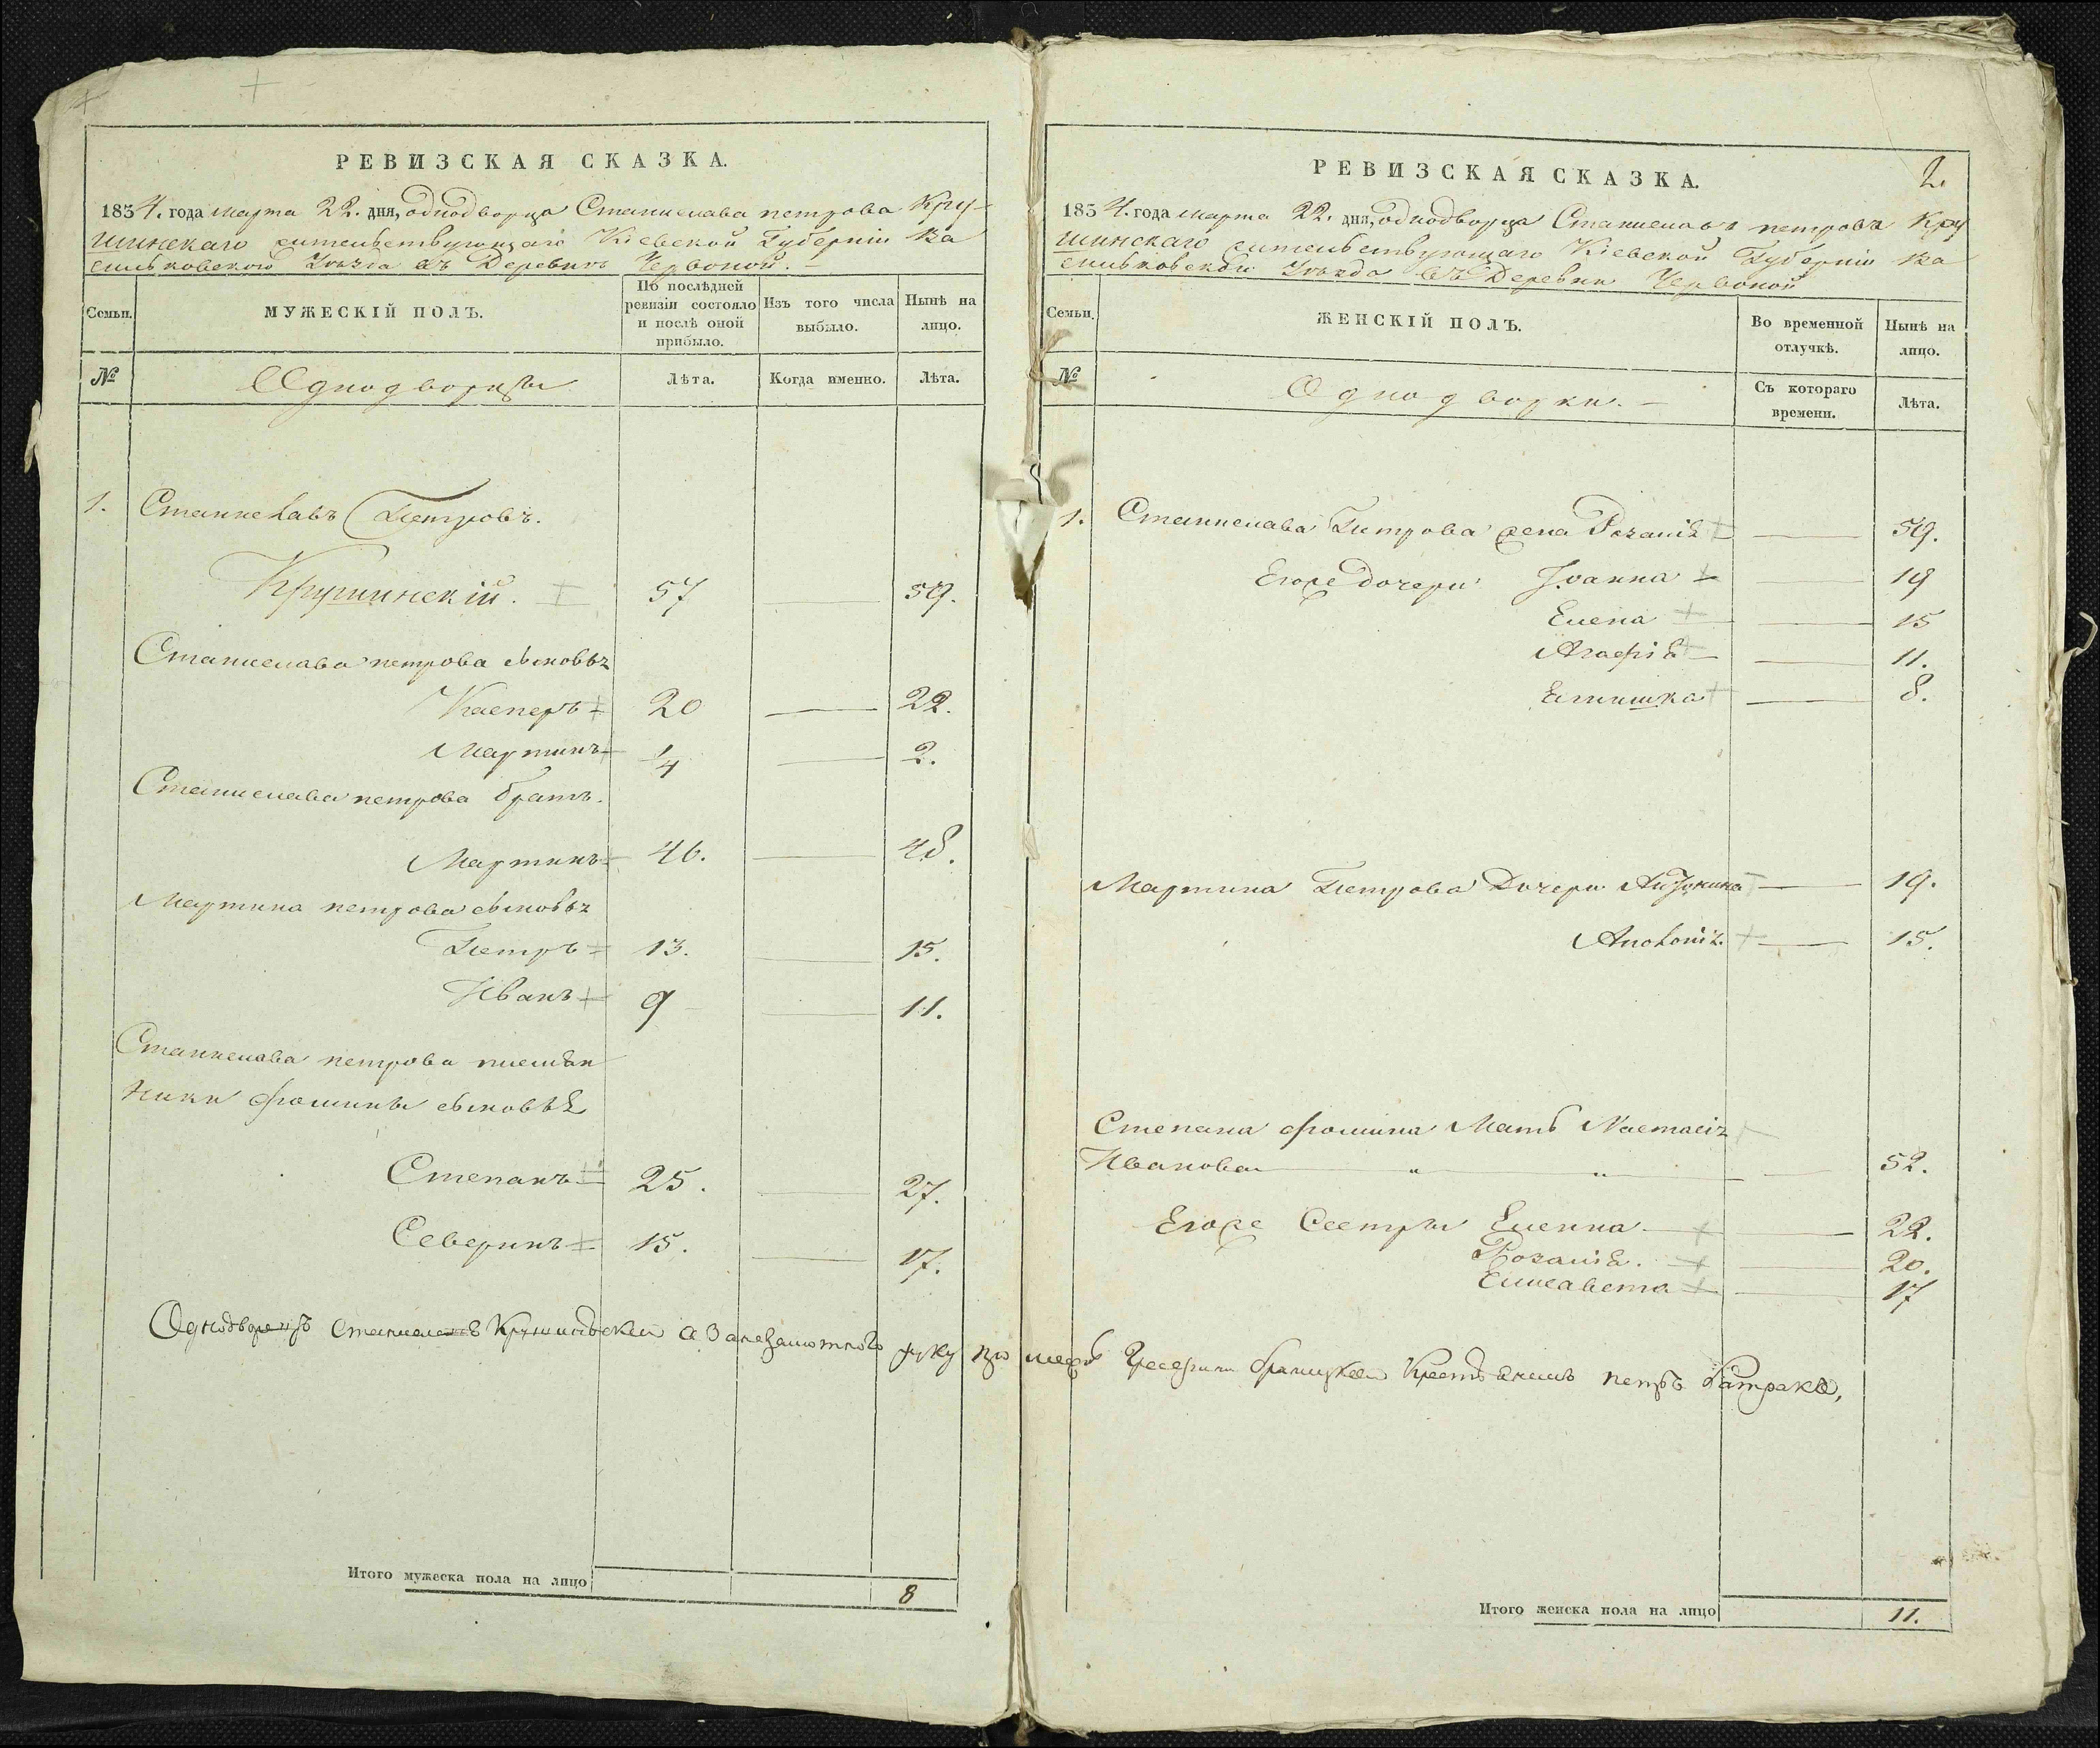 РЕВИЗСКАЯ СКАЗКА.
1834. года марта 22. дня, однодворца Станислава петрова Кру-
шинскаго жительствующаго Кіевской Губерніи Ва
сильковскаго Уѣзда въ Деревнѣ Червоной. –
Семьи.
МУЖЕСКІЙ ПОЛЪ.
По послѣдней ревизіи состояло и послѣ оной прибыло.
Изъ того числа выбыло.
Нынѣ на лицо.
№
Однодворцы
Лѣта.
Когда именно.
Лѣта.
1. Станиславъ Петровъ.
Крушинскій. 57 — 59.
Станислава петрова сыновья
Касперъ 20 — 22.
Мартинъ 1/4 — 2.
Станислава петрова братъ.
Мартинъ 46. — 48.
Мартина петрова сыновья
Петръ 13. — 15.
Иванъ 9 — 11.
Станислава петрова племян
ники фомины сыновья
Степанъ 25. — 27.
Северинъ 15. — 17.
Однодворецъ Станиславъ
Итого мужеска пола на лицо 8
РЕВИЗСКАЯ СКАЗКА.
2.
1834. года марта 22. дня, однодворца Станислава петрова Кру
шинскаго жительствующаго Кіевской Губерніи Ва
сильковскаго Уѣзда въ Деревни Червоной
Семьи.
ЖЕНСКІЙ ПОЛЪ.
Во временной отлучкѣ.
Нынѣ на лицо.
№
Однодворки. –
Съ котораго времени.
Лѣта.
1. Станислава Петрова жена Розалія — 59.
Егоже дочери Іоанна — 19
Елена — 15
Агафія — 11.
— 8.
Мартина Петрова Дочери — 19.
Аполонія — 15.
Степана фомина Мать Настасія
Иванова " " — 52.
Егоже Сестры Еленна — 22.
Розалія. — 20.
Елисавета — 17
Крестьянинъ петръ
Итого женска пола на лицо 11.